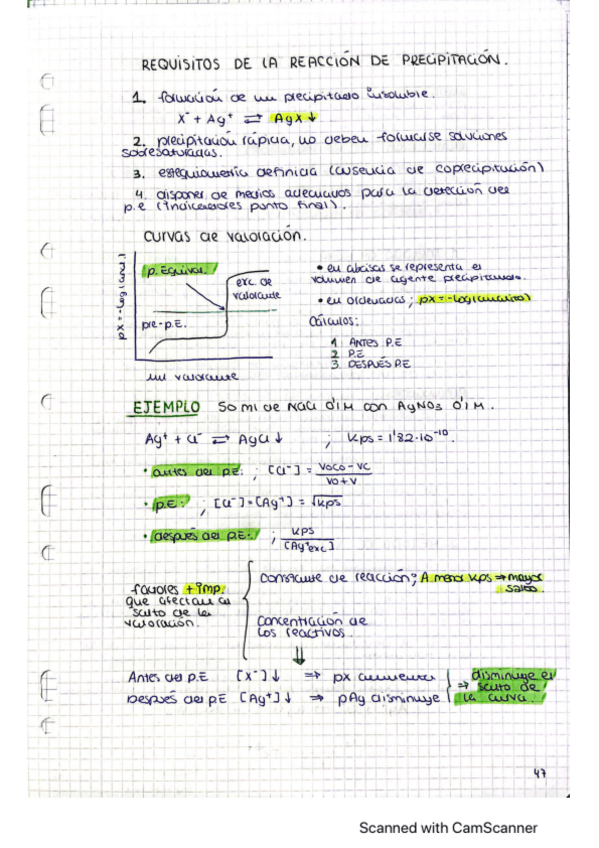 REQUISITOS DE LA REACCIÓN DE PRECIPITACIÓN.
1. formación de un precipitado insoluble.
X⁻ + Ag⁺ ⇄ AgX↓
2. precipitación rápida, no deben formarse soluciones
sobresaturadas.
3. estequiometría definida (ausencia de coprecipitación)
4. disponer de medios adecuados para la detección del
p.e (indicadores punto final).
CURVAS de valoración.
px = -log [anal.]
p. Equival.
exc. de
valorante
pre-p.E.
ml valorante
• en abcisas se representa el
volumen de agente precipitante.
• en ordenadas; px = -log(analito)
Cálculos:
1 ANTES P.E
2 P.E
3. DESPUÉS P.E
EJEMPLO 50 ml de NaCl 0'1 M con AgNO₃ 0'1 M.
Ag⁺ + Cl⁻ ⇄ AgCl↓ ; Kps = 1'82·10⁻¹⁰.
• antes del P.E: ; [Cl⁻] = V₀C₀ - VC / V₀ + V
• P.E: ; [Cl⁻] = [Ag⁺] = √Kps
• después del P.E: ; Kps / [Ag⁺exc]
factores + imp.
que afectan al
salto de la
valoración.
Constante de reacción; A menor Kps ⇒ mayor
salto.
Concentración de
los reactivos.
⇓
Antes del P.E [X⁻]↓ ⇒ px aumenta
Después del PE [Ag⁺]↓ ⇒ pAg disminuye
⇒ disminuye el
salto de
la curva.
47
Scanned with CamScanner